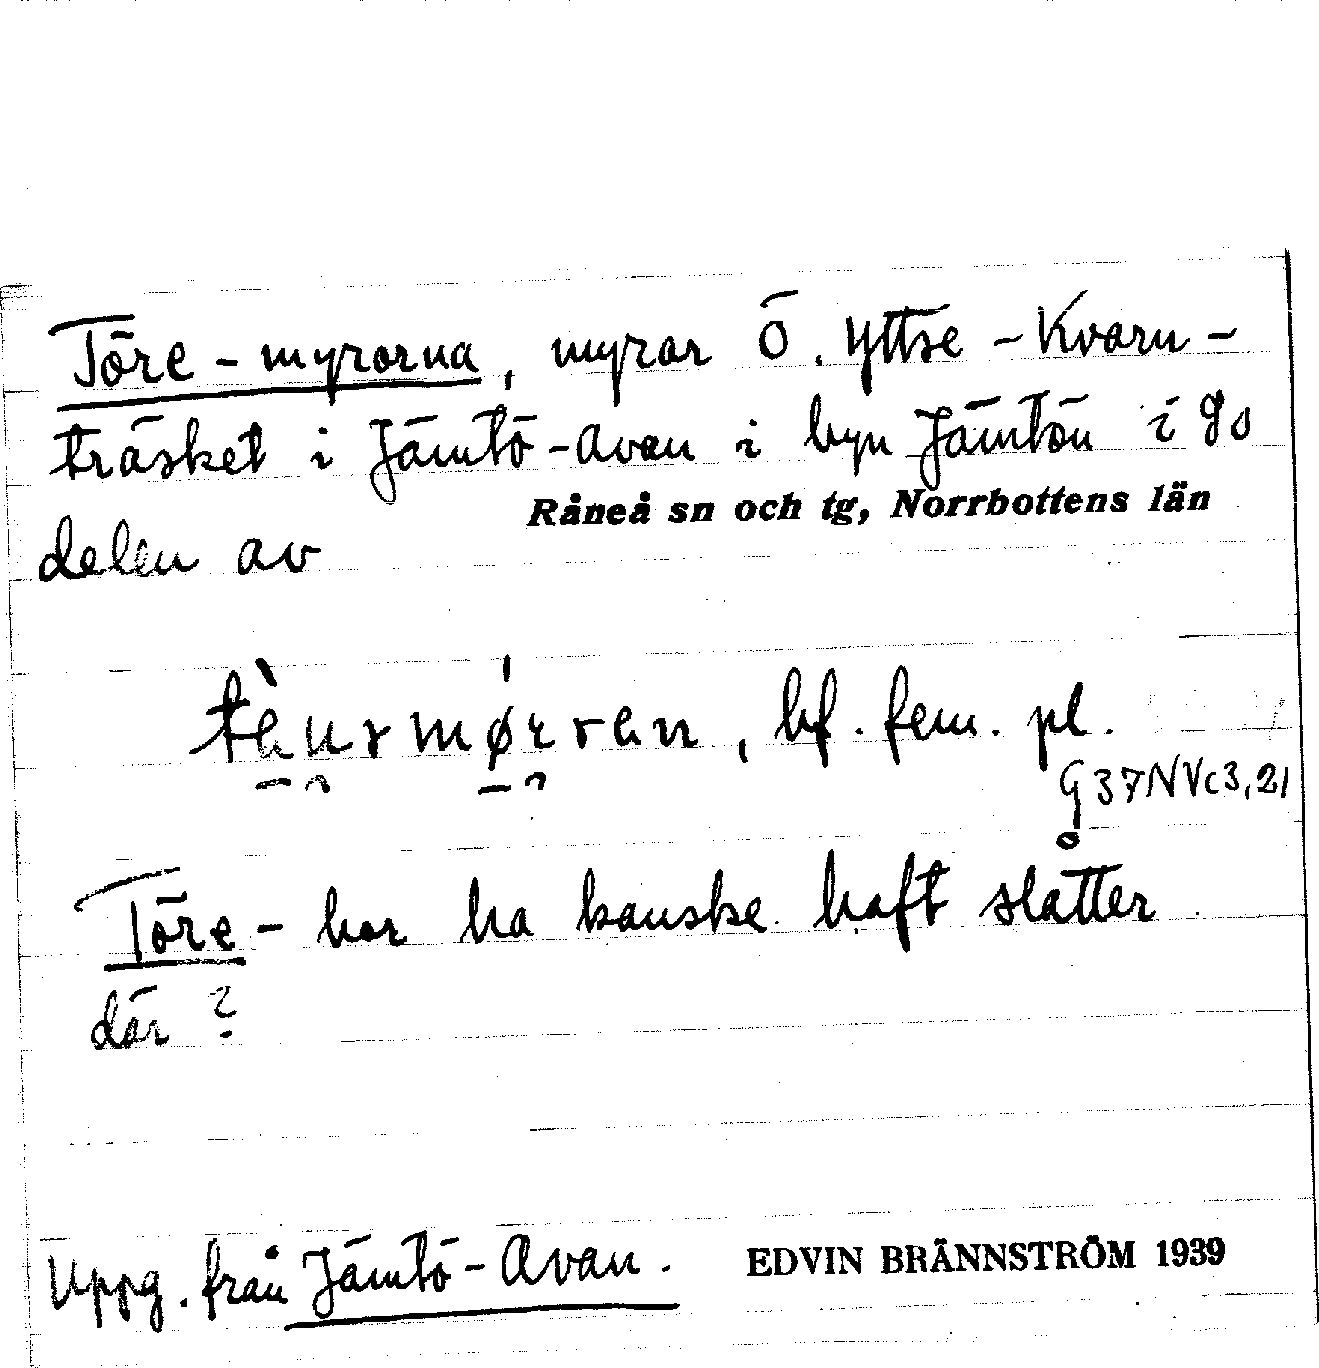 Töre-myrorna, myrar Ö. Yttse-Kvarn-
träsket i Jämtö-Avan i byn Jämtön i go
Råneå sn och tg, Norrbottens län
delen av
bf. fem. pl.
G37NVc3,21
Töre-bor ha kanske haft slåtter
där?
Uppg. från Jämtö-Avan.
EDVIN BRÄNNSTRÖM 1939